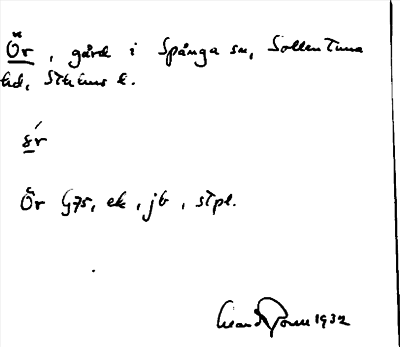 Ör, gård i Spånga sn, Sollentuna
hd, Sthlms l.
Ör G75, ek, jb, stpl.
1932